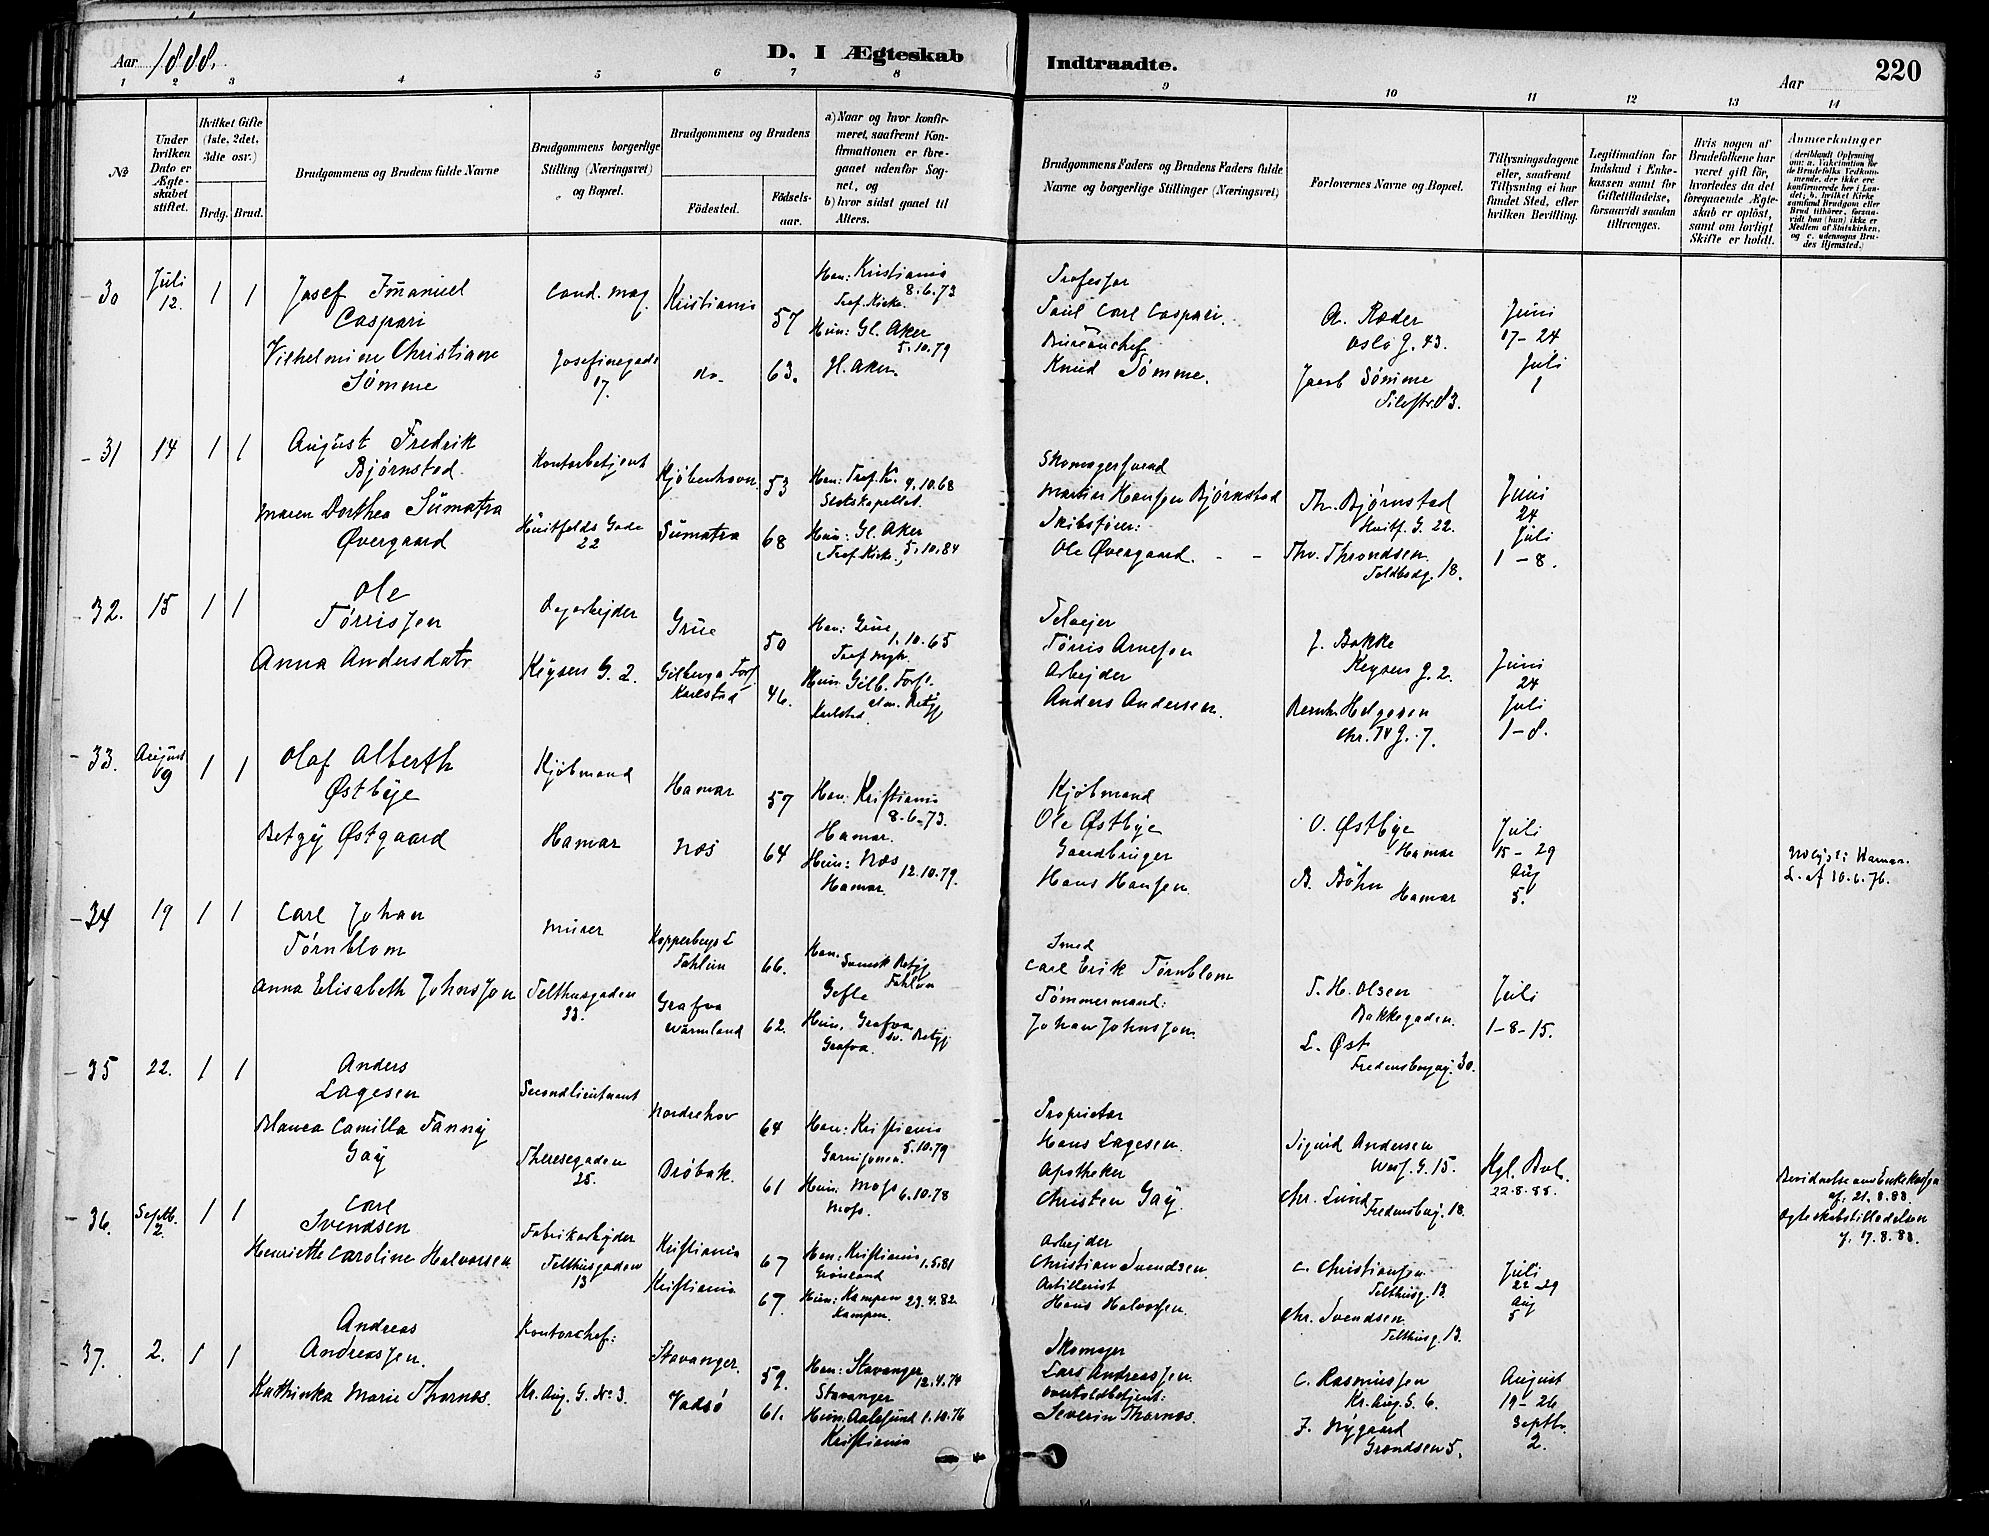 Aar 1888.
D. I Ægteskab Indtraadte.
Aar
220
1 2 3 4 5 6 7 8 9 10 11 12 13 14
No
Under hvilken Dato er Ægteskabet stiftet.
Hvilket Gifte (1ste, 2det, 3die osv.)
Brdg. Brud.
Brudgommens og Brudens fulde Navne
Brudgommens borgerlige Stilling (Næringsvei) og Bopæl.
Brudgommens og Brudens
Fødested.
Fødselsaar.
a) Naar og hvor konfirmeret, saafremt Konfirmationen er foregaaet udenfor Sognet, og
b) hvor sidst gaaet til Alters.
Brudgommens Faders og Brudens Faders fulde Navne og borgerlige Stillinger (Næringsvei)
Forlovernes Navne og Bopæl.
Tillysningsdagene eller, saafremt Tillysning ei har fundet Sted, efter hvilken Bevilling.
Legitimation for Indskud i Enkekassen samt for Giftetilladelse, forsaavidt saadan tiltrænges.
Hvis nogen af Brudefolkene har været gift før, hvorledes da det foregaaende Ægteskab er opløst, samt om lovligt Skifte er holdt.
Anmerkninger
(deriblandt Oplysning om: a. Vakcination for de Brudefolks Vedkommende, der ikke ere konfirmerede her i Landet; b. hvilket Kirkesamfund Brudgom eller Brud tilhører, forsaavidt han (hun) ikke er Medlem af Statskirken, og c. udensogns Brudes Hjemsted.)
30 Juli 12. 1 1
Josef Imanuel Caspari
Vilhelmine Christiane Sømme
Cand. mag.
Josefinegade 17.
Kristiania 57
do. 63.
Han: Kristiania 8.6.73
Tref. Kirke.
Hun: Gl. Aker 5.10.79
Gl. Aker.
Professor
Paul Carl Caspari.
Bureauchef
Knud Sømme.
A. Ræder
Oslo g. 43.
Jacob Sømme
Pilestr. 83.
Juni 17-24
Juli 1
31 14 1 1
August Fredrik Bjørnstad.
Maren Dorthea Sumatra Øvergaard
Kontorbetjent
Huitfelds Gade 22
Kjøbenhavn 53
Sumatra 68
Han: Tref. K. 4.10.68
Slotskapellet.
Hun: Gl. Aker
Tref. Kirke, 5.10.84
Skomagersvend
Martin Hansen Bjørnstad
Skibsfører:
Ole Øvergaard.
Th. Bjørnstad
Huitf. G. 22.
Thv. Throndsen
Toldbodg. 18.
Juni 24
Juli 1-8.
32. 15 1 1
Ole Tørrissen
Anna Andersdatr
Dagarbejder
Keysers G. 2.
Grue 50
Gilberga Fors. Karlstad 46.
Han: Grue 1.10.65
Hun Gilb. Fors.
Karlstad
Selvejer
Tørris Arnesen
Arbejder
Anders Andersen.
J. Bakke
Keysers g. 2.
Bernh. Helgesen
Chr. IV g. 7.
Juni 24
Juli 1-8.
33. August 9 1 1
Olaf Alberth Østbye
Betzy Østgaard
Kjøbmand
Hamar
Hamar 57
Næs 64
Han: Kristiania 8.6.73.
Hamar.
Hun: Næs 12.10.79.
Hamar.
Kjøbmand
Ole Østbye
Gaardbruger
Hans Hansen
O. Østbye
Hamar
B. Bøhn
Hamar
Juli 15-29
Aug 5.
L. af 10.6.76.
34 19 1 1
Carl Johan Törnblom
Anna Elisabeth Johnsson
Murer
Telthusgaden 33.
Kopperbergs L Fahlun 66.
Grafva Wärmland 62.
Han. Svensk Betyg
Fahlun
Gefle
Hun. Grafva
sv. Betyg
Grafva.
Smed
Carl Erik Törnblom
Tømmermand:
Johan Johnsson.
T. H. Olsen
Bakkegaden.
L. Øst
Fredensborgvg. 30.
Juli 1-8-15.
35 22. 1 1
Anders Lagesen
Blanca Camilla Fanny Gay
Secondlieutnant
Theresegaden 25.
Nordrehov 64
Drøbak. 61
Han: Kristiania 5.10.79
Garnisonen.
Hun. Moss 6.10.78
Moss.
Proprietær
Hans Lagesen.
Apotheker
Christen Gay.
Sigurd Andersen
Wess. G. 15.
Chr. Lund
Fredensborg. 18.
Kgl. Bev.
22.8.88.
Bevidnelse om Enkekassen
af: 21.8.88.
Ægteskabstilladelsen
af. 17.8.88.
36. Septb. 2. 1 1
Carl Svendsen
Henriette Caroline Halvorsen
Fabrikarbejder
Telthusgaden 13
Kristiania 67
Kristiania 67.
Han: Kristiania 1.5.81
Grønland
Hun: Kampen 23.4.82
Kampen.
Arbejder
Christian Svendsen.
Artillerist
Hans Halvorsen.
C. Christiansen
Telthusg. 13.
Chr. Svendsen.
Telthusg. 13.
Juli 22-29
Aug 5
37. 2. 1 1
Andreas Andreassen.
Kathinka Marie Thornæs.
Kontorchef:
Kr. Aug. G. No 3.
Stavanger. 59.
Vadsø 61.
Han: Stavanger 12.4.74
Stavanger
Hun: Aalesund 1.10.76
Kristiania
Skomager
Lars Andreassen.
Overtoldbetjent:
Severin Thornæs.
C. Rasmussen
Kr. Aug. G. 6.
J. Nygaard
Grændsen 5.
August 19-26
Septbr 2.